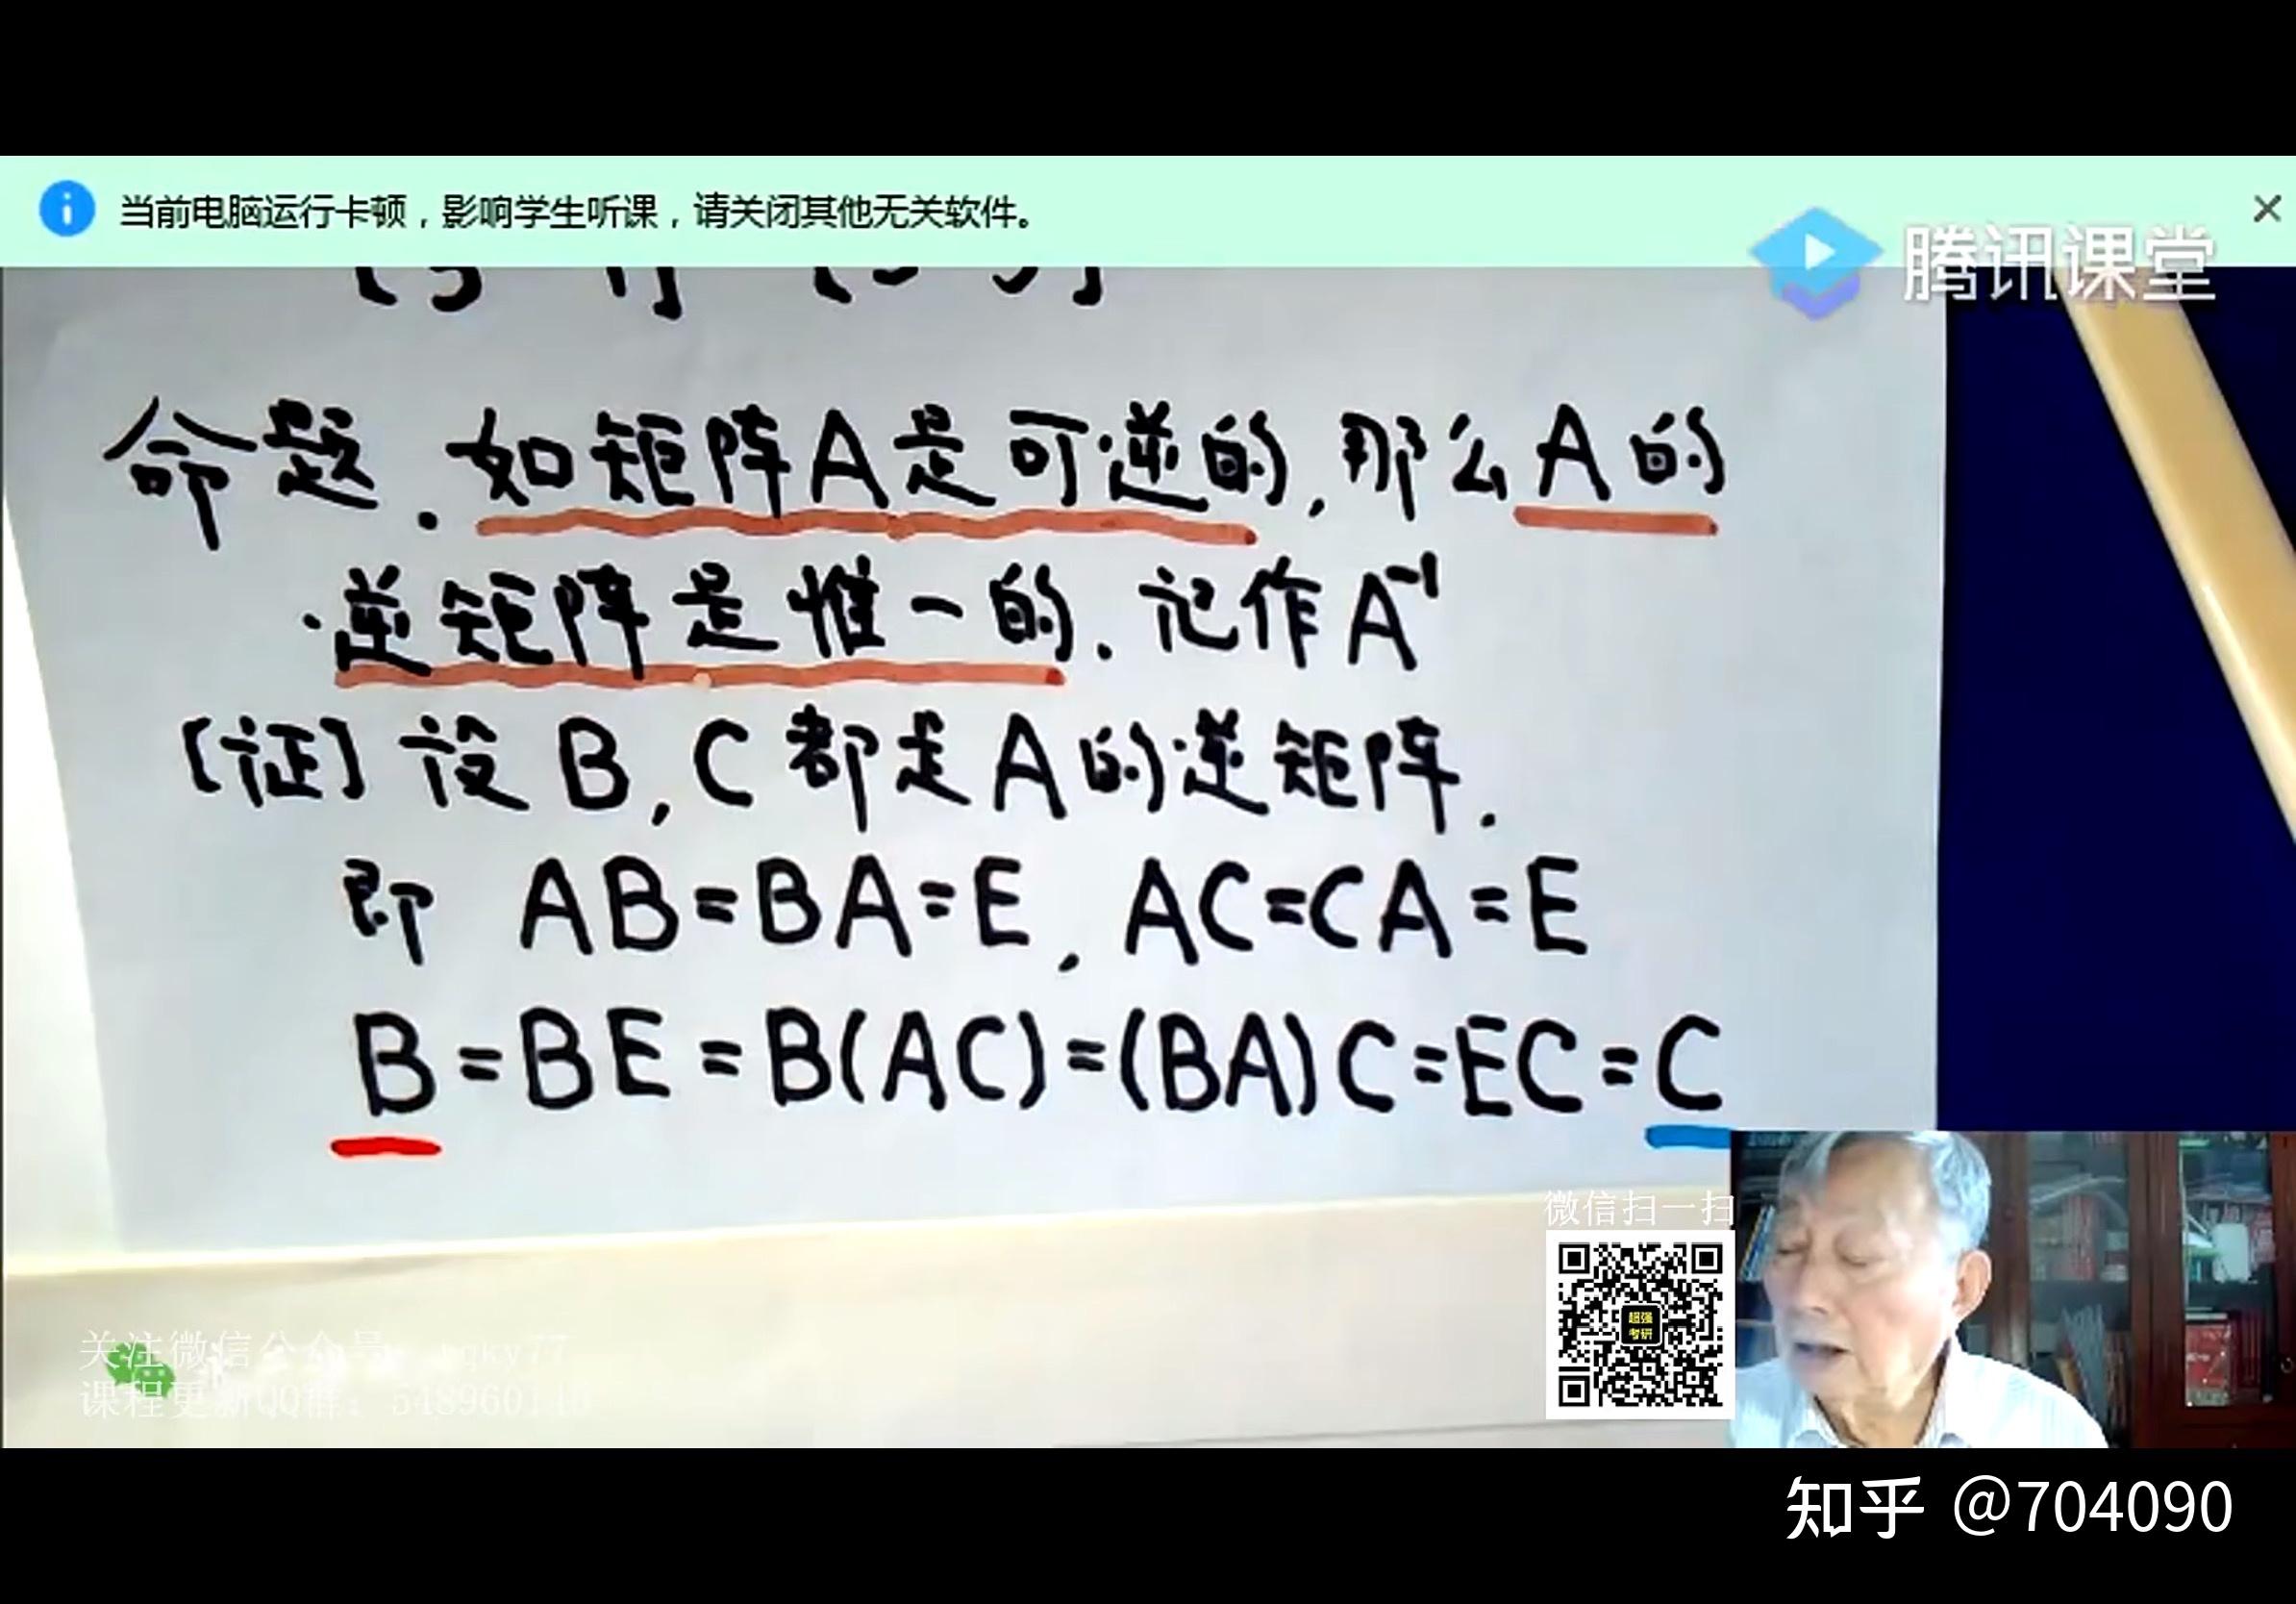 当前电脑运行卡顿，影响学生听课，请关闭其他无关软件。
腾讯课堂
命题．如矩阵A是可逆的，那么A的
逆矩阵是惟一的．记作A⁻¹
[证] 设 B，C 都是A的逆矩阵．
即 AB=BA=E，AC=CA=E
B=BE=B(AC)=(BA)C=EC=C
微信扫一扫
超强
考研
关注微信公众号
课程更新QQ群：
知乎 @704090